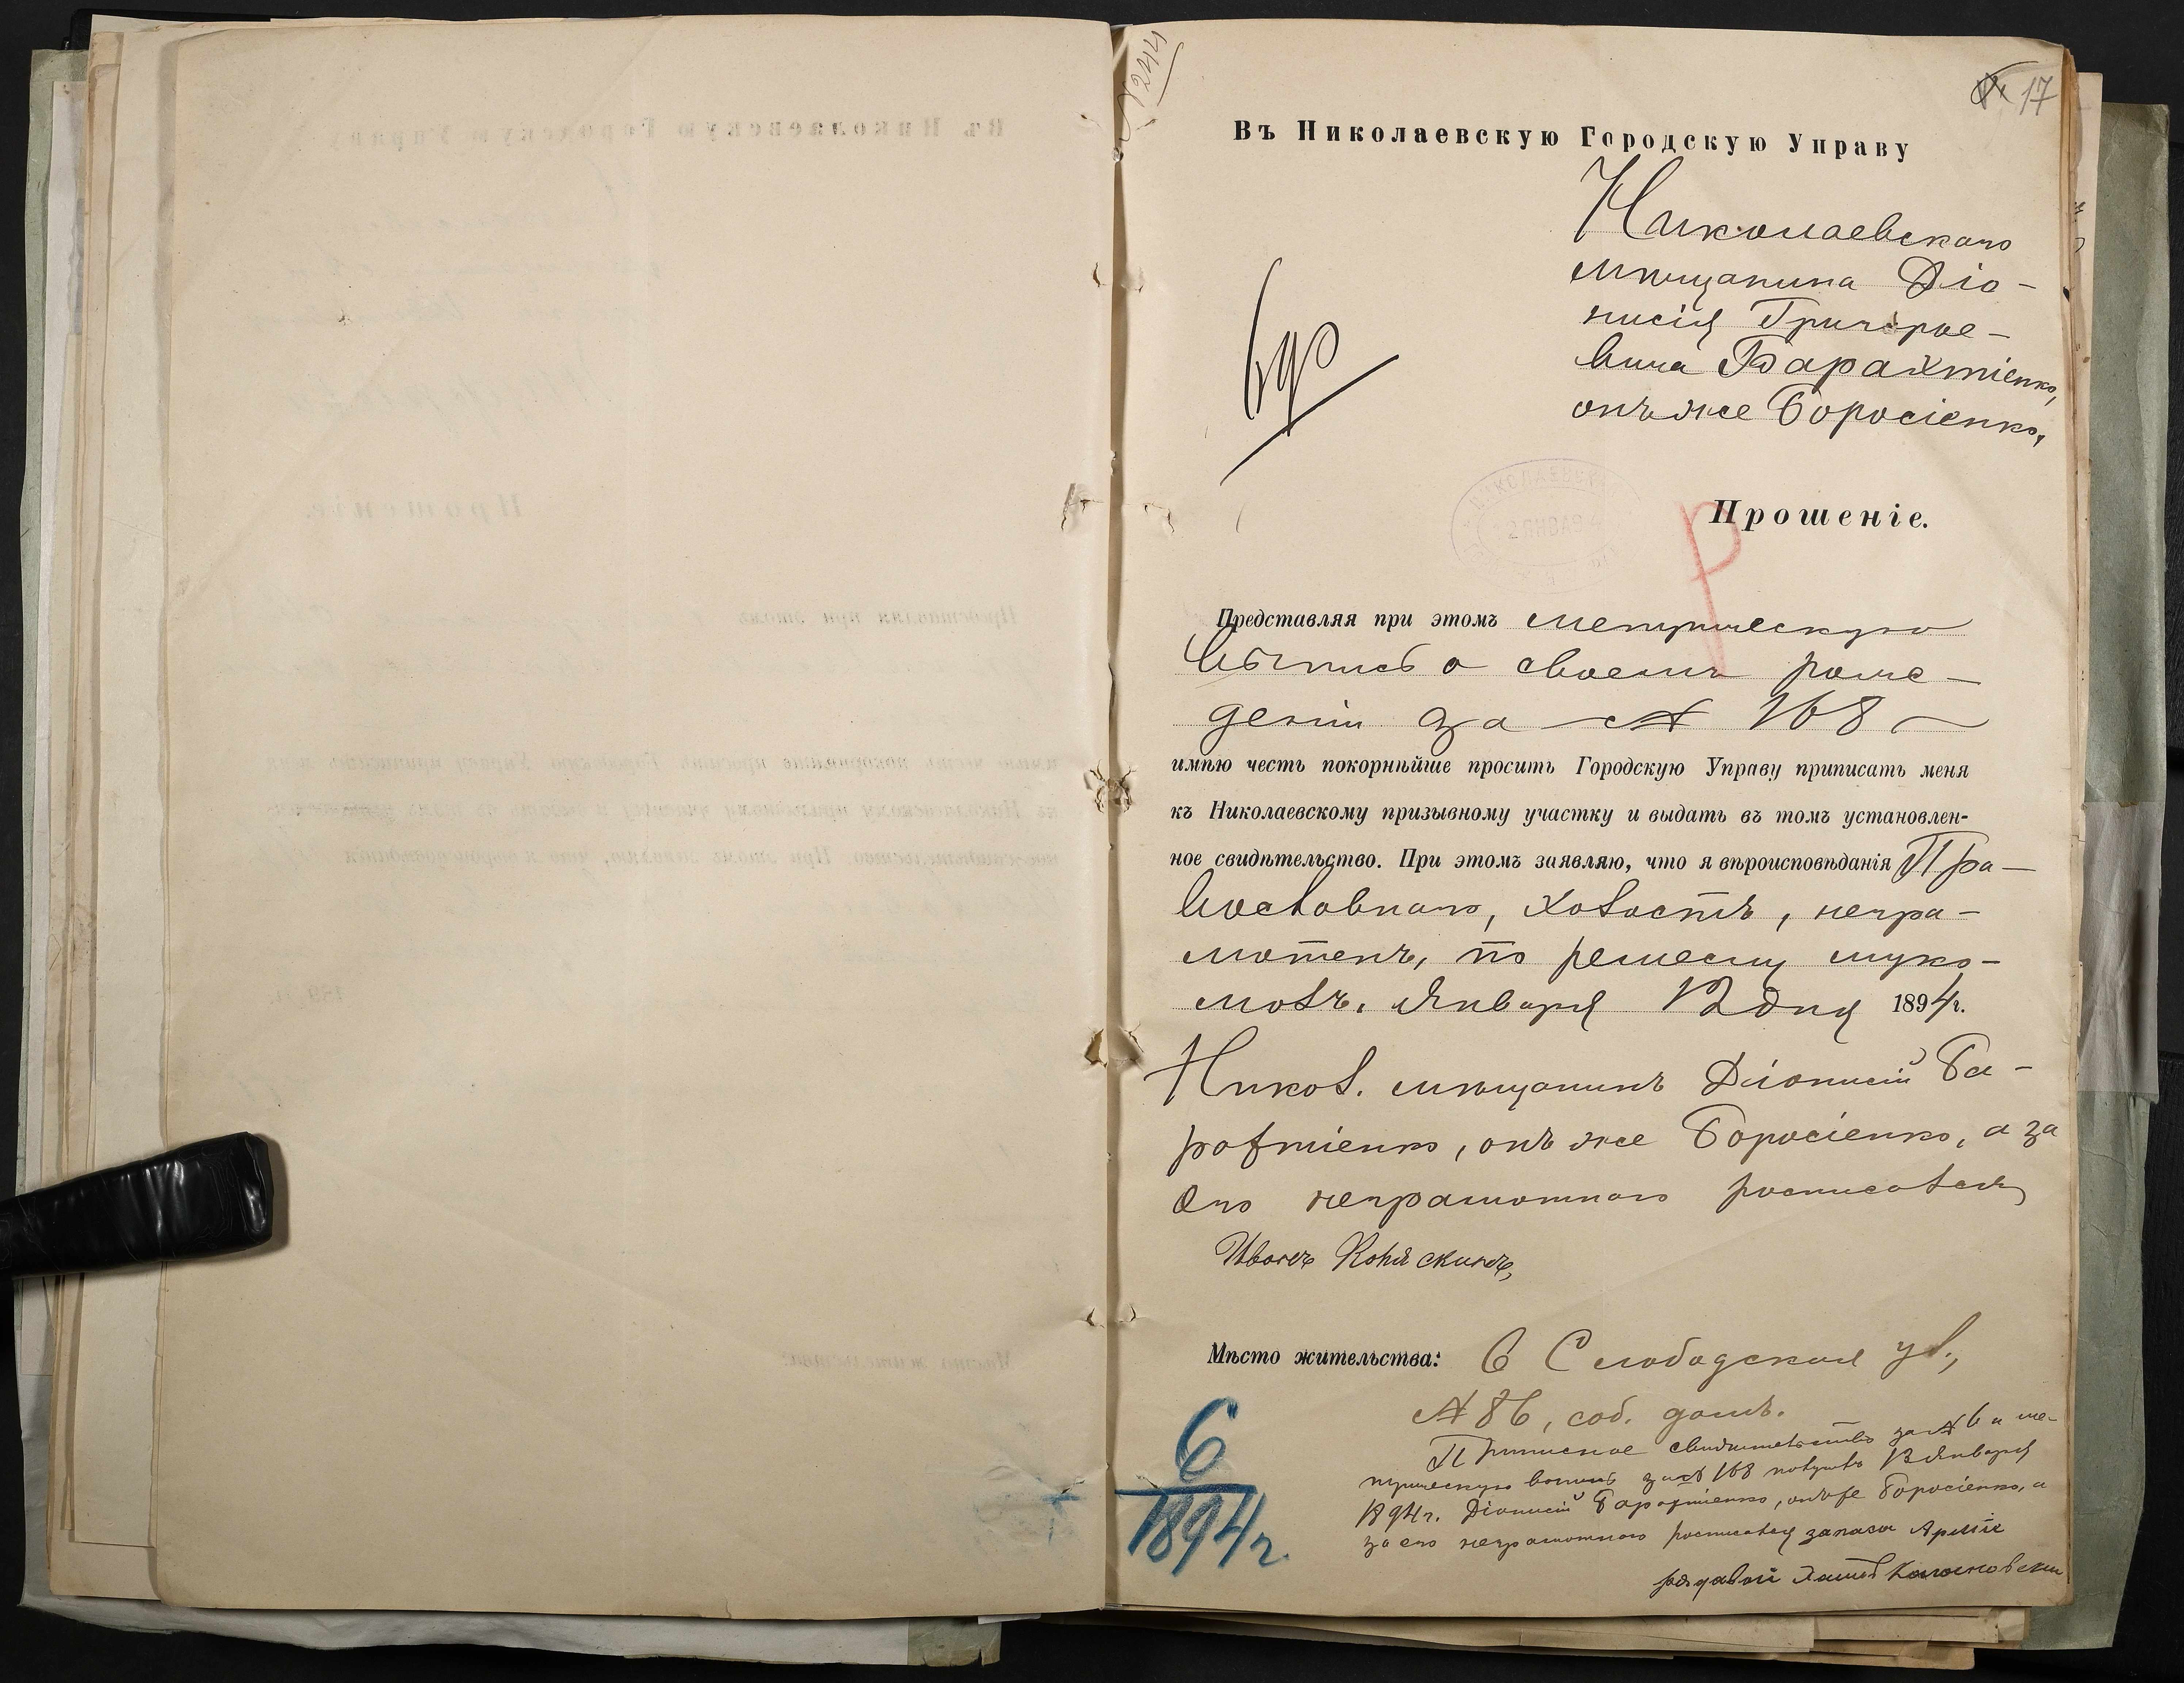 № 244
17
Въ Николаевскую Городскую Управу
Николаевскаго
мѣщанина Діо-
нисія Григорье-
вича Барахтіенко,
онъ же Боросіенко,
Прошеніе.
Представляя при этомъ метрическую
выпись о своемъ рож-
деніи за № 168
имѣю честь покорнѣйше просить Городскую Управу приписать меня
къ Николаевскому призывному участку и выдать въ томъ установлен-
ное свидѣтельство. При этомъ заявляю, что я вѣроисповѣданія Пра-
вославнаго, холостъ, негра-
мотенъ, по ремеслу муко-
молъ. Января 12 дня 1894 г.
Никол. мѣщанинъ Діонисій Ба-
рахтіенко, онъ же Боросіенко, а за
его неграмотнаго росписался
Иванъ Коняскинъ,
Мѣсто жительства: 6 Слободская ул.,
№ 86, соб. домъ.
Приписное свидѣтельство за № 6 и ме-
трическую выпись за № 168 получилъ 12 Января
1894 г. Діонисій Барахтіенко, онъ же Боросіенко, а
за его неграмотнаго росписался запаса Арміи
рядовой
6
1894 г.